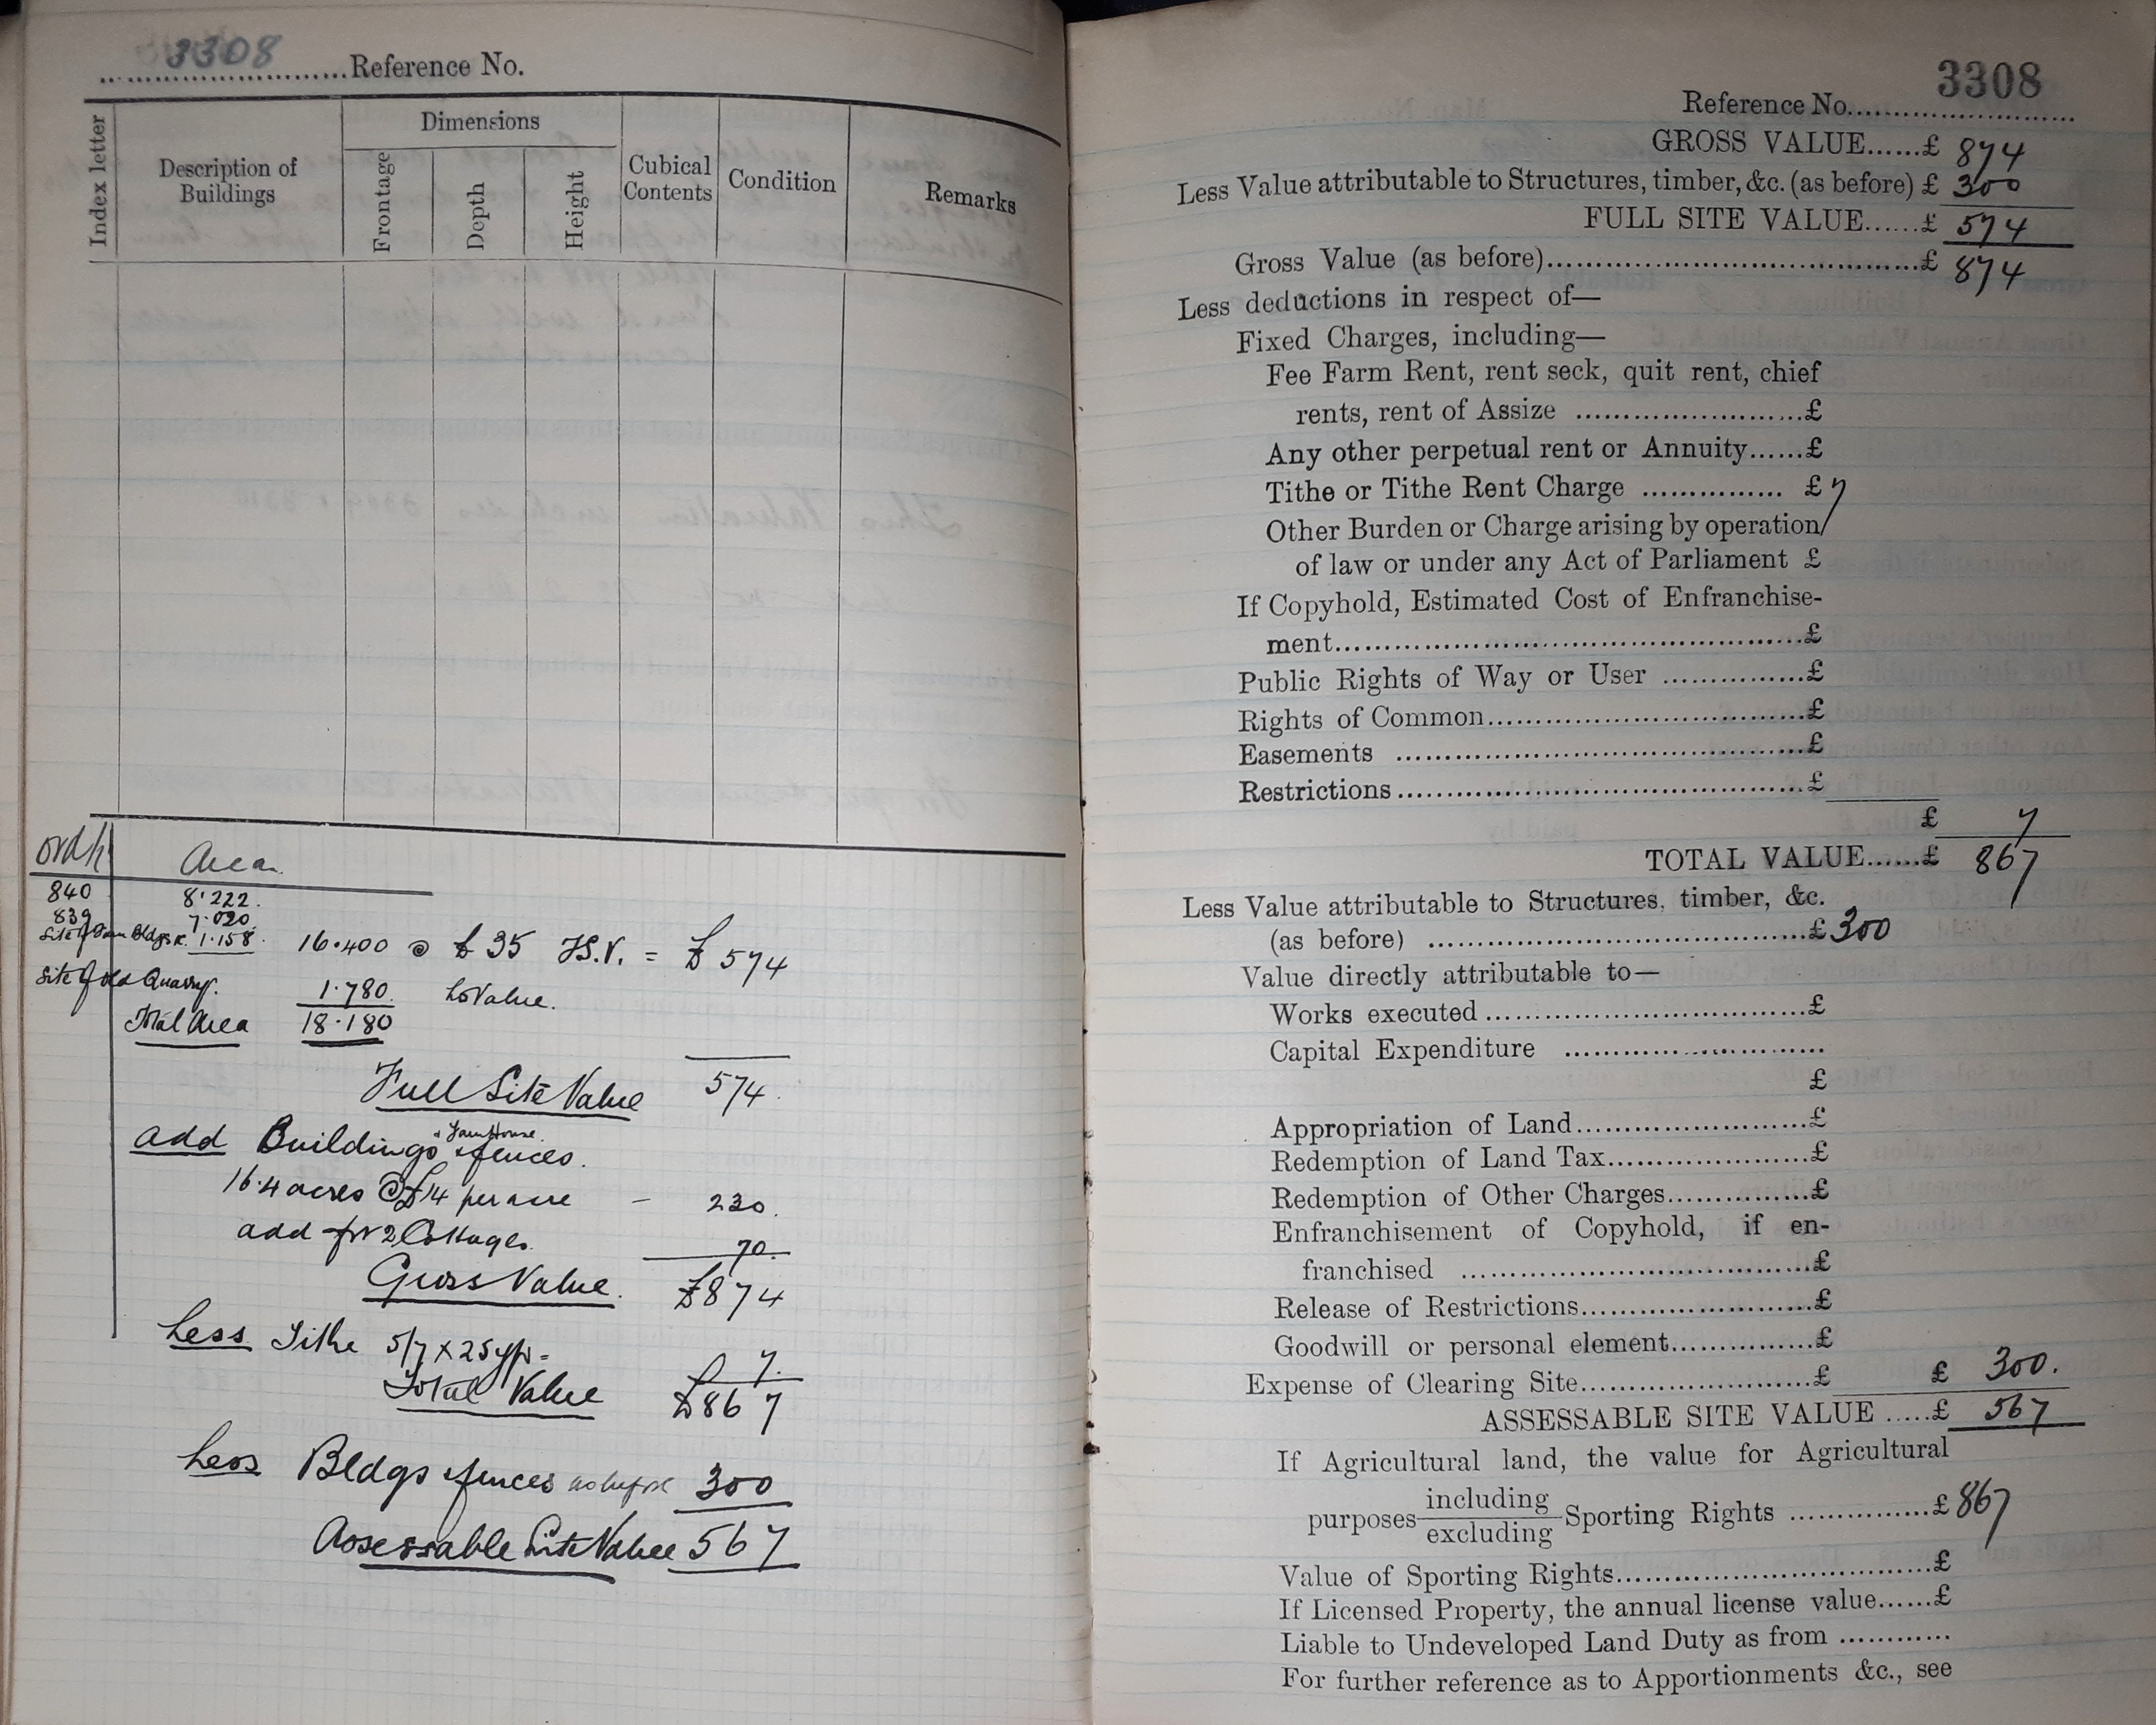 3308
Reference No.
Index letter
Description of Buildings
Dimensions
Frontage
Depth
Height
Cubical Contents
Condition
Remarks
Area
840 8.222.
839 7.020
Site of Farm Bldgs &c 1.158. 16.400 @ £35 F.S.V. = £574
Site of old Quarry. 1.780. No Value.
Total Area 18.180
Full Site Value 574.
add Buildings & Farm House. & fences.
16.4 acres @ £14 per acre - 230.
add for 2 Cottages. 70.
Gross Value. £874
Less Tithe 5/7 x 25 yp = 7.
Total Value £867
Less Bldgs & fences as before 300
Assessable Site Value 567
3308
Reference No.
GROSS VALUE......£ 874
Less Value attributable to Structures, timber, &c. (as before) £ 300
FULL SITE VALUE......£ 574
Gross Value (as before)......£ 874
Less deductions in respect of—
Fixed Charges, including—
Fee Farm Rent, rent seck, quit rent, chief
rents, rent of Assize ......£
Any other perpetual rent or Annuity......£
Tithe or Tithe Rent Charge ............... £ 7
Other Burden or Charge arising by operation
of law or under any Act of Parliament £
If Copyhold, Estimated Cost of Enfranchise-
ment......£
Public Rights of Way or User ......£
Rights of Common......£
Easements ......£
Restrictions......£
£ 7
TOTAL VALUE......£ 867
Less Value attributable to Structures, timber, &c.
(as before) ......£ 300
Value directly attributable to—
Works executed ......£
Capital Expenditure ......
£
Appropriation of Land......£
Redemption of Land Tax......£
Redemption of Other Charges......£
Enfranchisement of Copyhold, if en-
franchised ......£
Release of Restrictions......£
Goodwill or personal element......£
Expense of Clearing Site......£ £ 300.
ASSESSABLE SITE VALUE .....£ 567
If Agricultural land, the value for Agricultural
purposes including
excluding Sporting Rights ......£ 867
Value of Sporting Rights......£
If Licensed Property, the annual license value......£
Liable to Undeveloped Land Duty as from ............
For further reference as to Apportionments &c., see